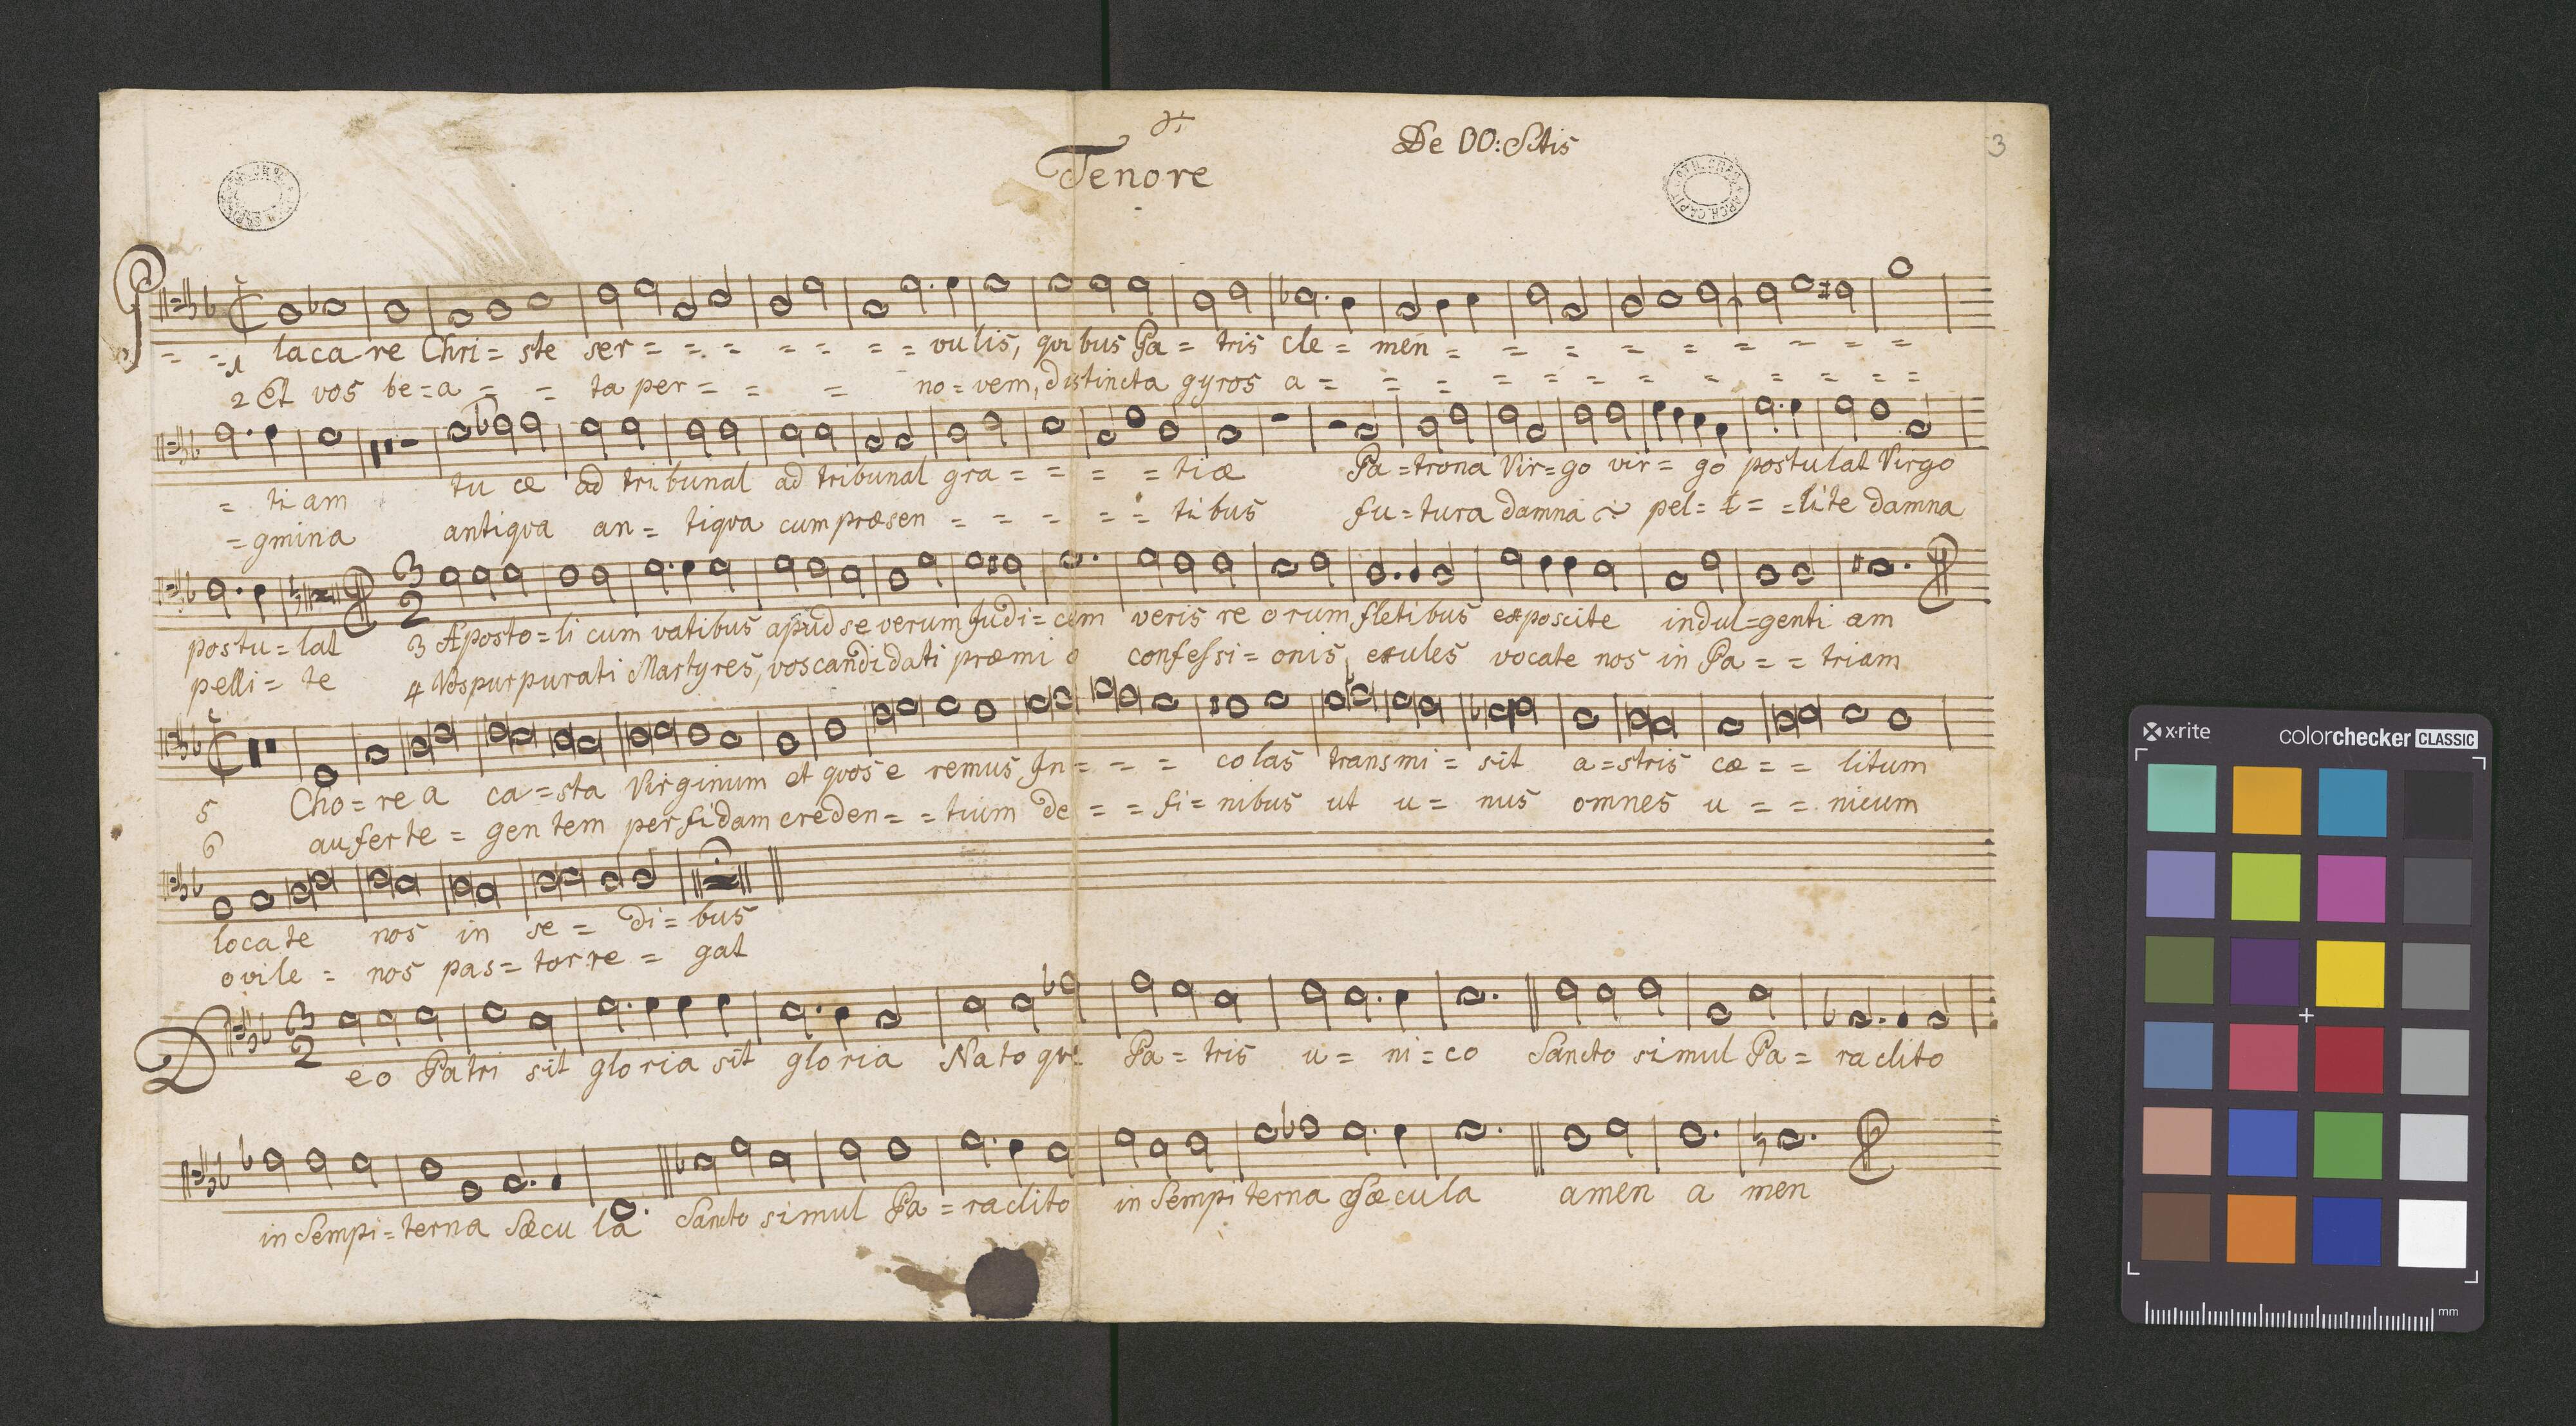 De DD: Sctis
3
Tenore
1 Placare Chri = ste ser = = = = = = = vulis, quibus Pa = tris cle = men = = = = = = = = =
2 Et vos be = a = = ta per = = = no = vem, distincta gyros a = = = = = = = = = = =
= ti am tuæ ad tribunal ad tribunal gra = = = = tiæ Pa = trona Vir = go vir = go postulat Virgo
= gmina antiqua an = tiqua cum præsen = = = = = tibus fu = tura damna pel = = = lite damna
postu = lat 3 Aposto = li cum vatibus apud severum Judi = cem veris re o rum fletibus exposcite indul = genti am
pelli = te 4 Vos purpurati Martyres, vos candidati præmi o confessi = onis exules vocate nos in Pa = = triam
5 Cho = re a ca = sta Virginum et quos e remus In = = = colas transmi = sit a = stris cæ = = litum
6 auferte = gentem perfidam creden = = tium de = = fi = nibus ut u = nus omnes u = = nicum
locate nos in se = di = bus
ovile = nos pas = tor re = gat
Deo Patri sit gloria sit gloria Nato que Pa = tris u = ni = co Sancto simul Pa = raclito
in Sempi = terna Sæcu la Sancto simul Pa = raclito in Sempiterna Sæcula amen a men
x·rite
colorchecker CLASSIC
mm